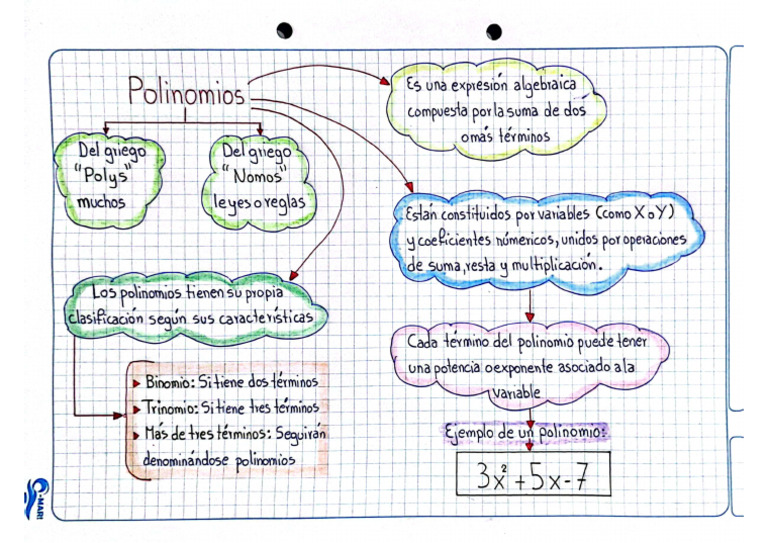 Polinomios
Es una expresión algebraica
compuesta por la suma de dos
o más términos
Del griego
"Polys"
muchos
Del griego
"Nomos"
leyes o reglas
Están constituidos por variables (como X o Y)
y coeficientes númericos, unidos por operaciones
de suma, resta y multiplicación.
Los polinomios tienen su propia
clasificación según sus características
Cada término del polinomio puede tener
una potencia o exponente asociado a la
variable
Binomio: Si tiene dos términos
Trinomio: Si tiene tres términos
Más de tres términos: Seguirán
denominándose polinomios
Ejemplo de un polinomio:
3x² + 5x - 7